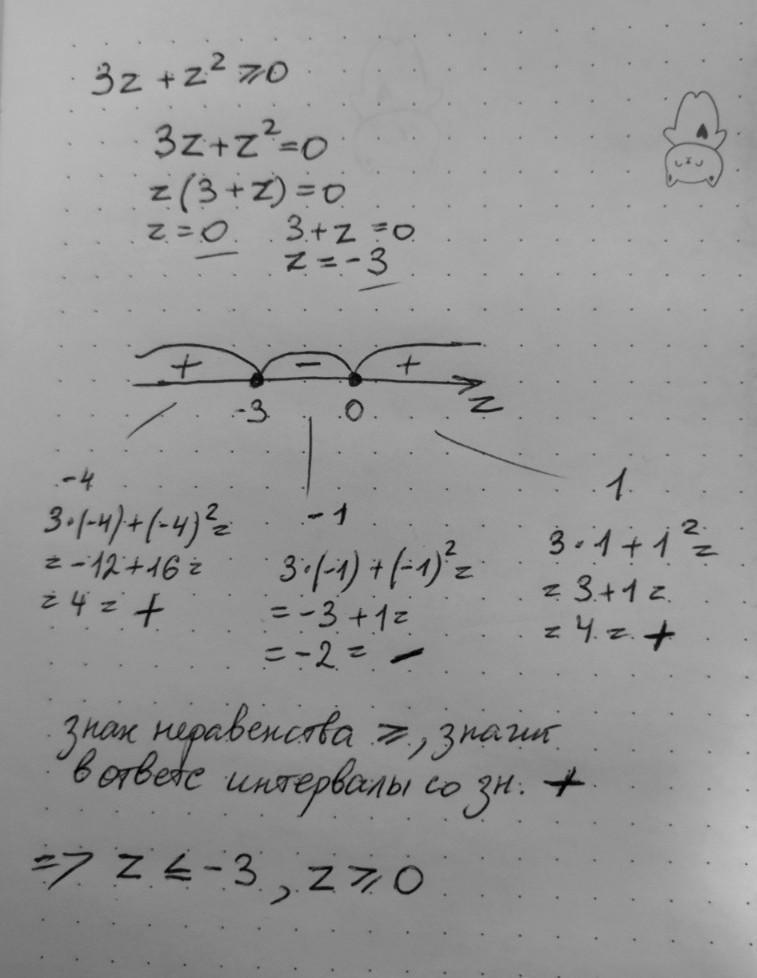 3z + z² ⩾ 0
3z + z² = 0
z(3 + z) = 0
z = 0 3 + z = 0
z = -3
+ - +
-3 0 z
-4
3·(-4)+(-4)²=
= -12+16 =
= 4 = +
-1
3·(-1)+(-1)²=
= -3 + 1 =
= -2 = -
1
3·1 + 1² =
= 3+1 =
= 4 = +
знак неравенства ⩾, значит
в ответе интервалы со зн. +
=> z ⩽ -3, z ⩾ 0